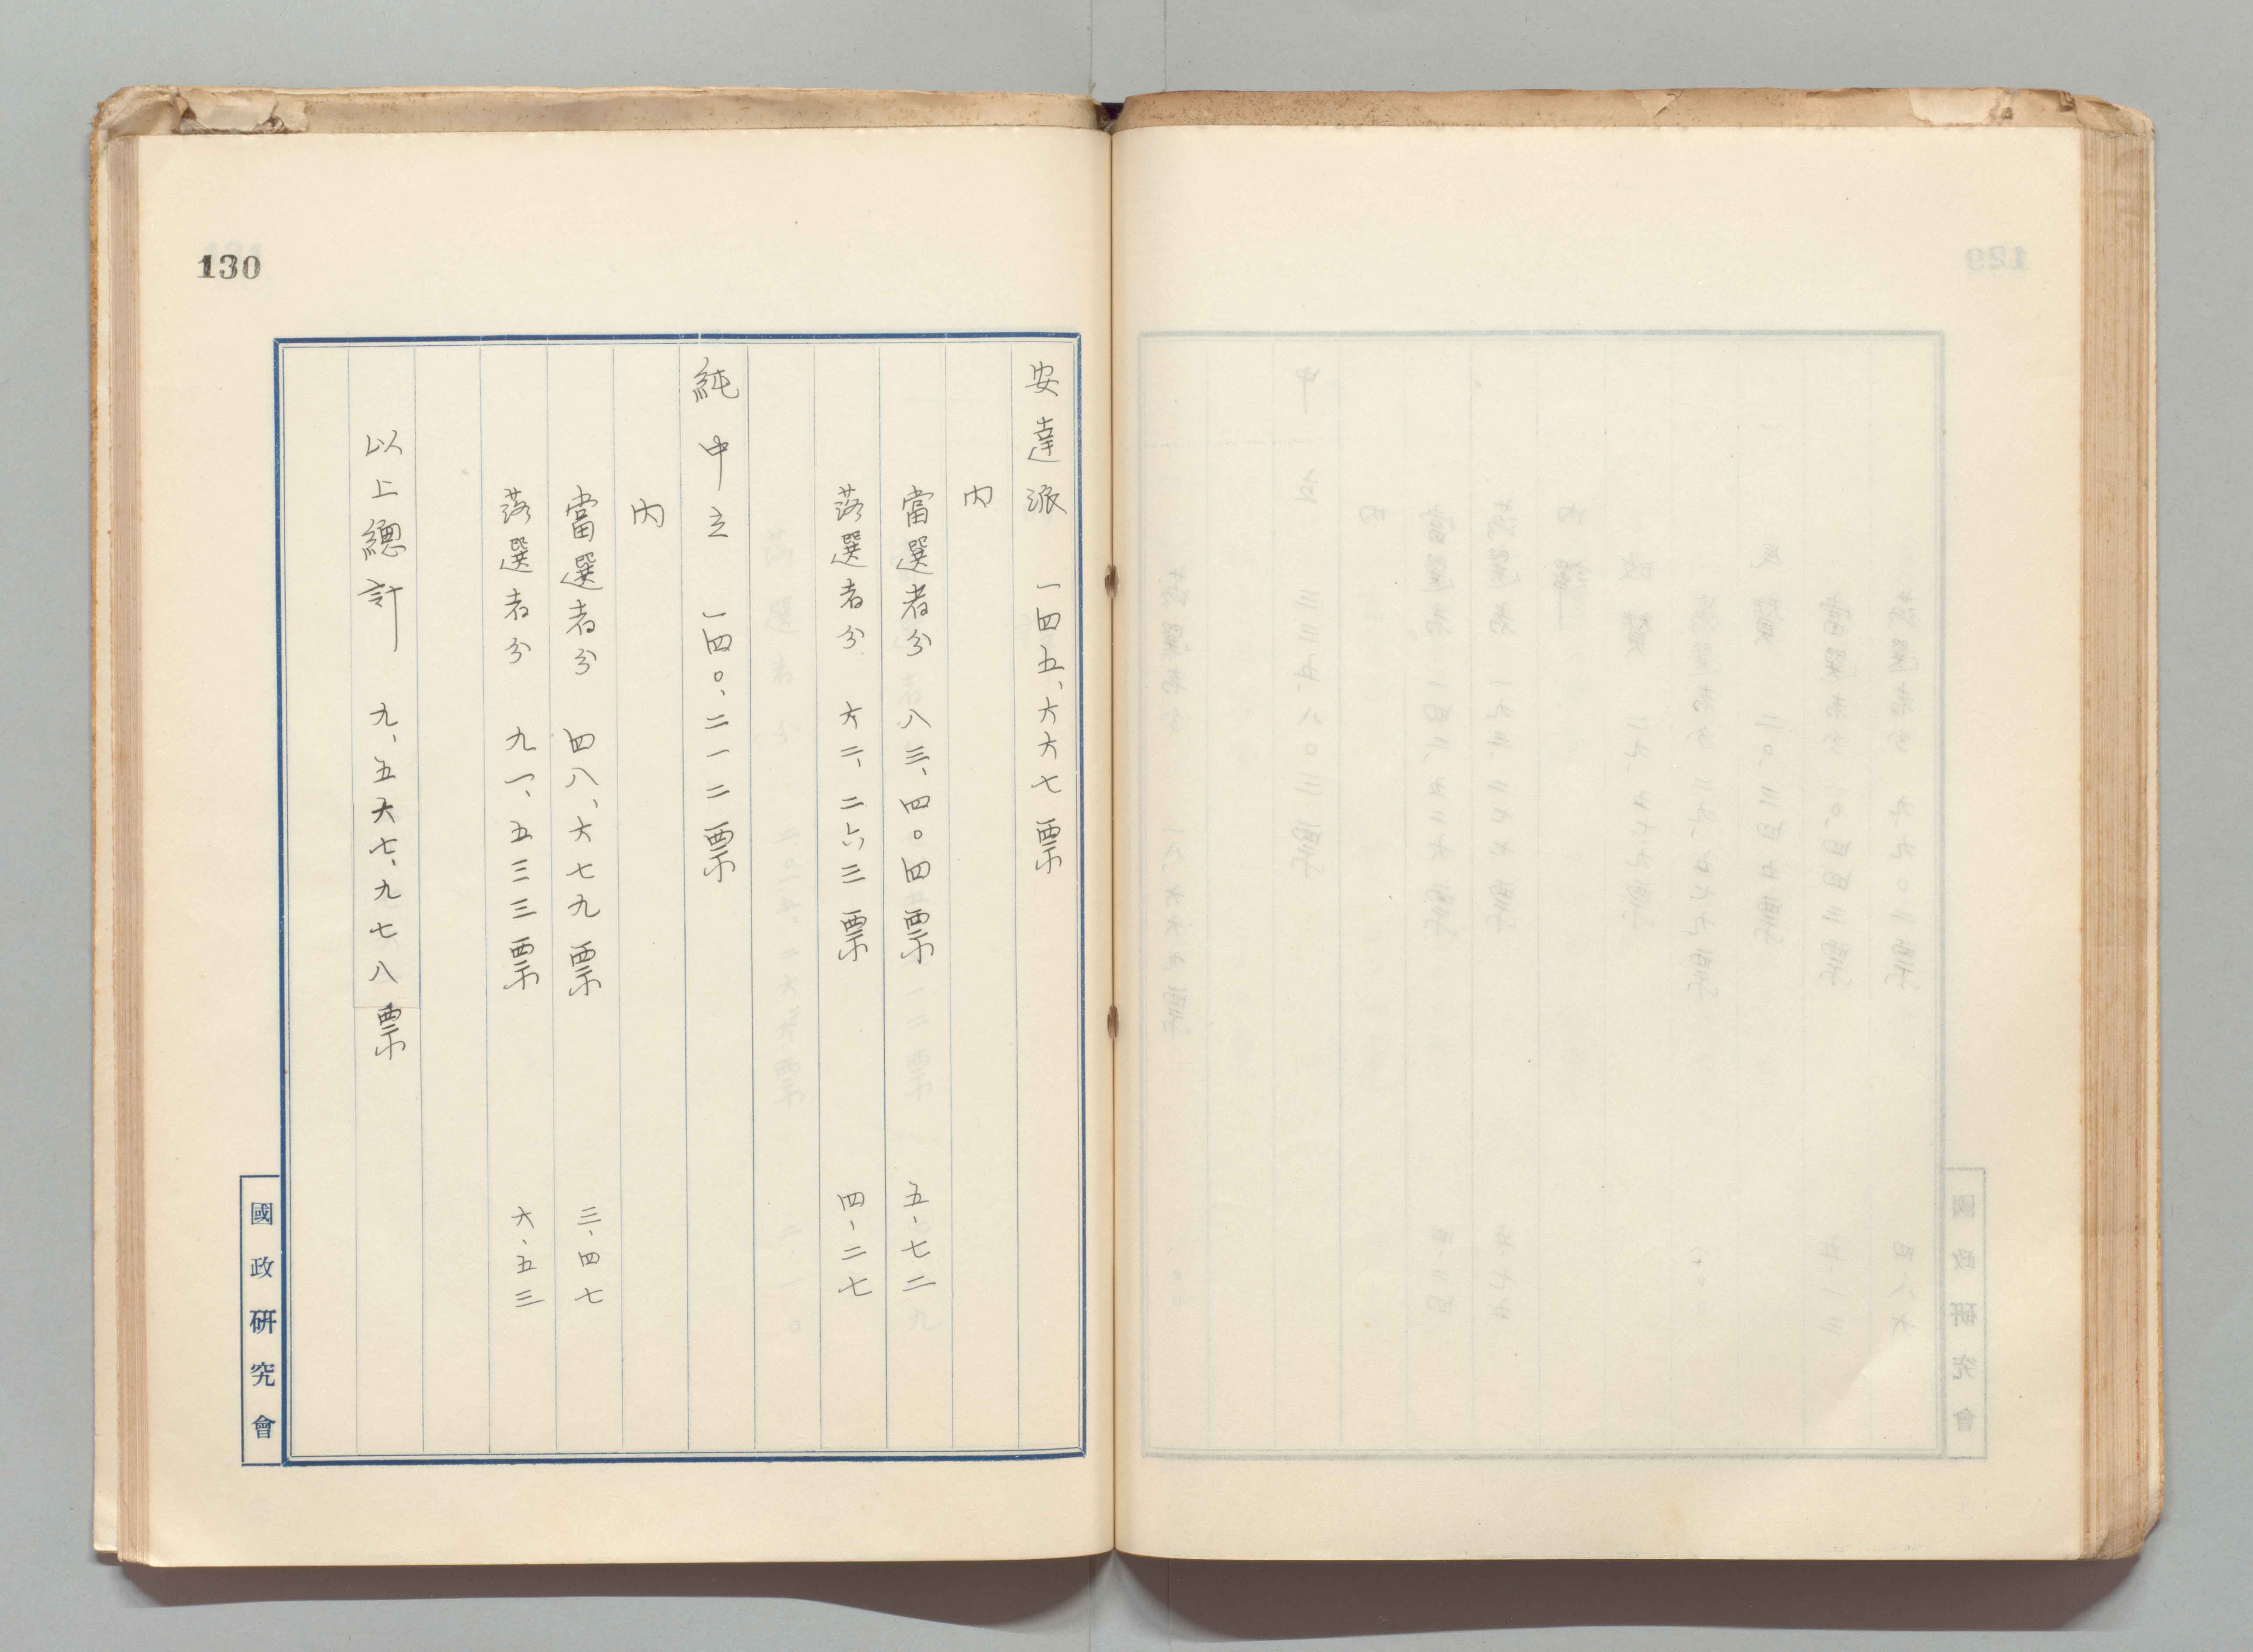 130
安達派　一四五、六六七票
内
當選者分　八三、四〇四票　五、七二
落選者分　六二、二六三票　四、二七
純中立　一四〇、二一二票
内
當選者分　四八、六七九票　三、四七
落選者分　九一、五三三票　六、五三
以上總計　九、五六七、九七八票
國政研究會